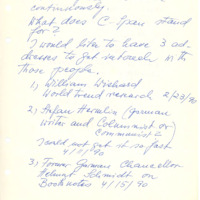 continuously.
What does C Span stand
for?
I would like to have 3 ad-
dresses to get
those people.
1) William
World Trend research 2/23/90
2) (German
writer and Columnist or
Communist?
could not get it so fast
4/1/90
3) Former German Chancellor
Helmut Schmidt on
Booknotes 4/15/90